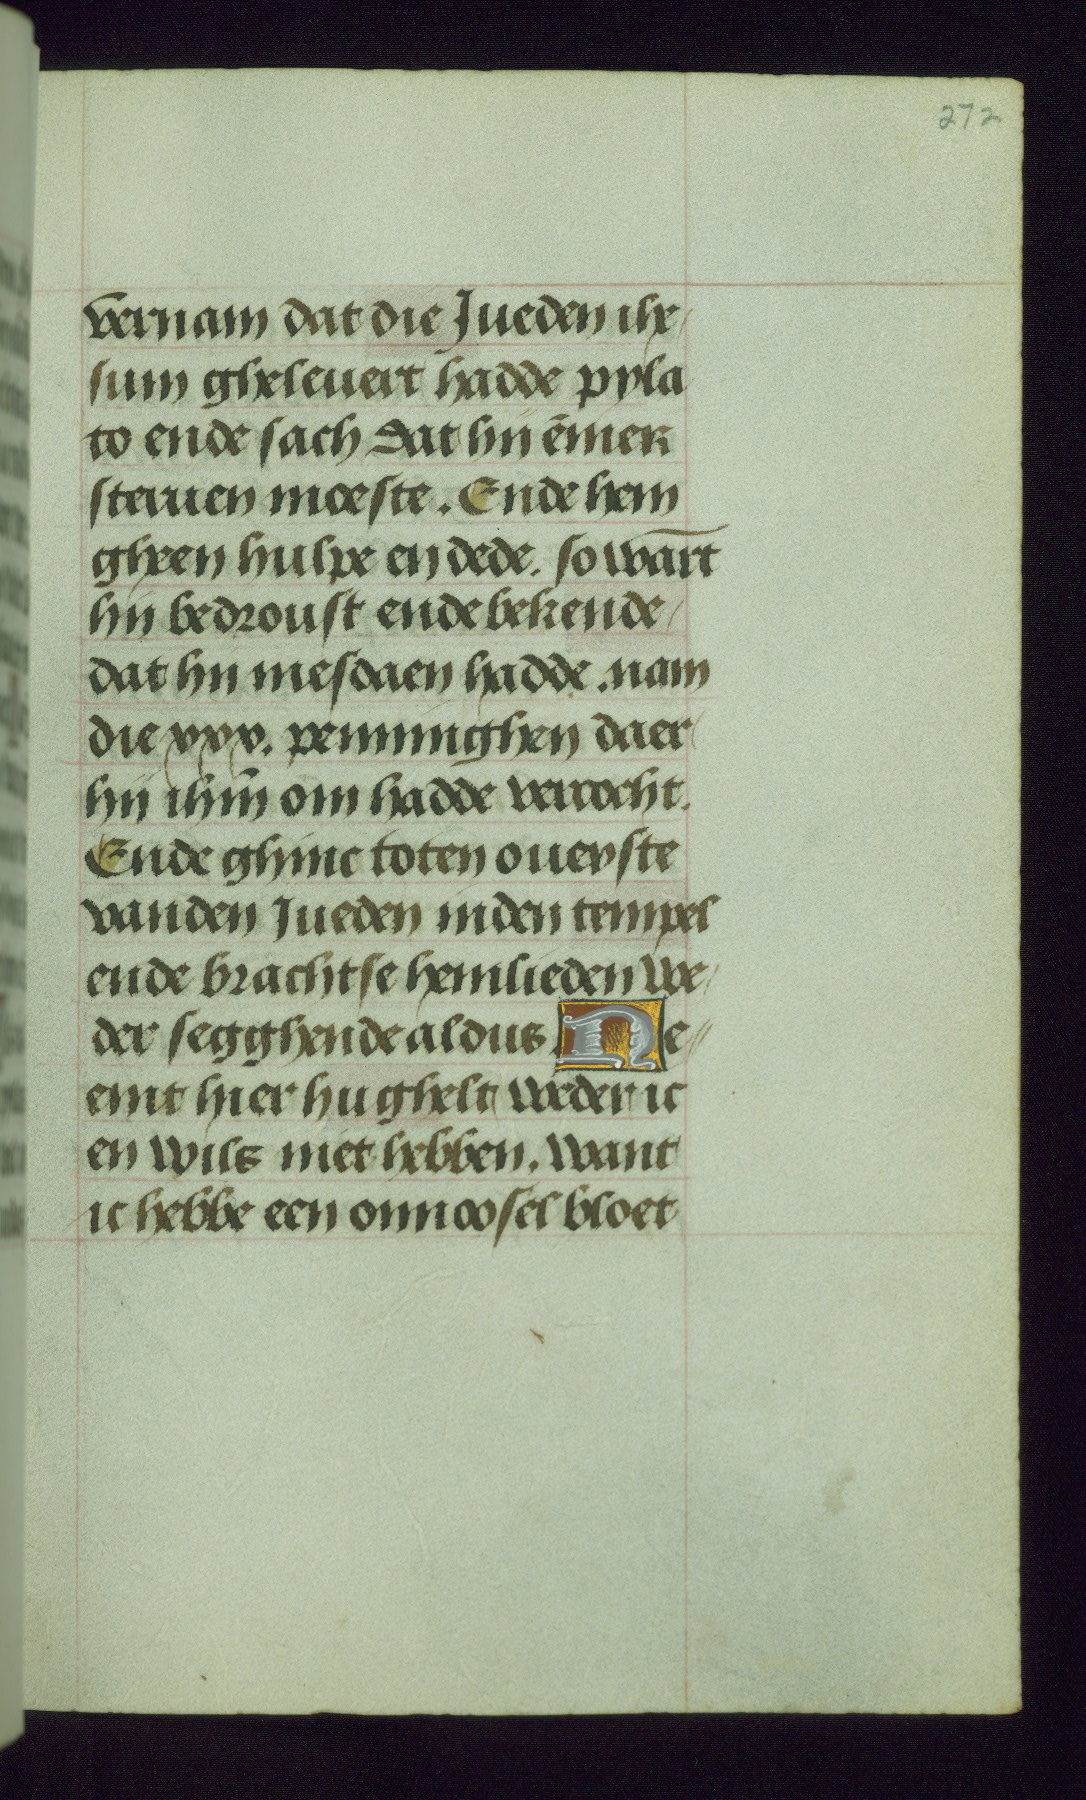 272
vernam dat die Jueden ihe/
sum gheleuert hadde pyla
to ende sach dat hij ēmer
steruen moeste. Ende hem
gheen hulpe en dede. so wart
hij bedroust ende bekende/
dat hij mesdaen hadde. nam
die xxx. penninghen daer
hij ihm̄ om hadde vercocht.
Ende ghinc toten ouerste
vanden Jueden inden tempel
ende brachtse hemlieden we/
der segghende aldus. Ne//
emt hier hu ghelt weder ic
en wils niet hebben. want
ic hebbe een onnoosel bloet